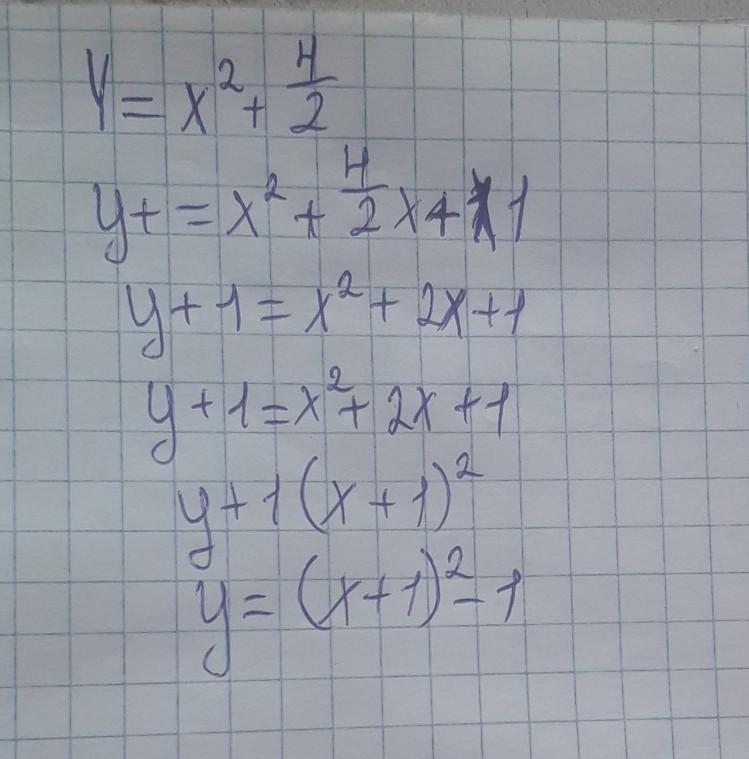 Y = x² + 4/2
y + = x² + 4/2 x + 1
y + 1 = x² + 2x + 1
y + 1 = x² + 2x + 1
y + 1 (x + 1)²
y = (x + 1)² - 1